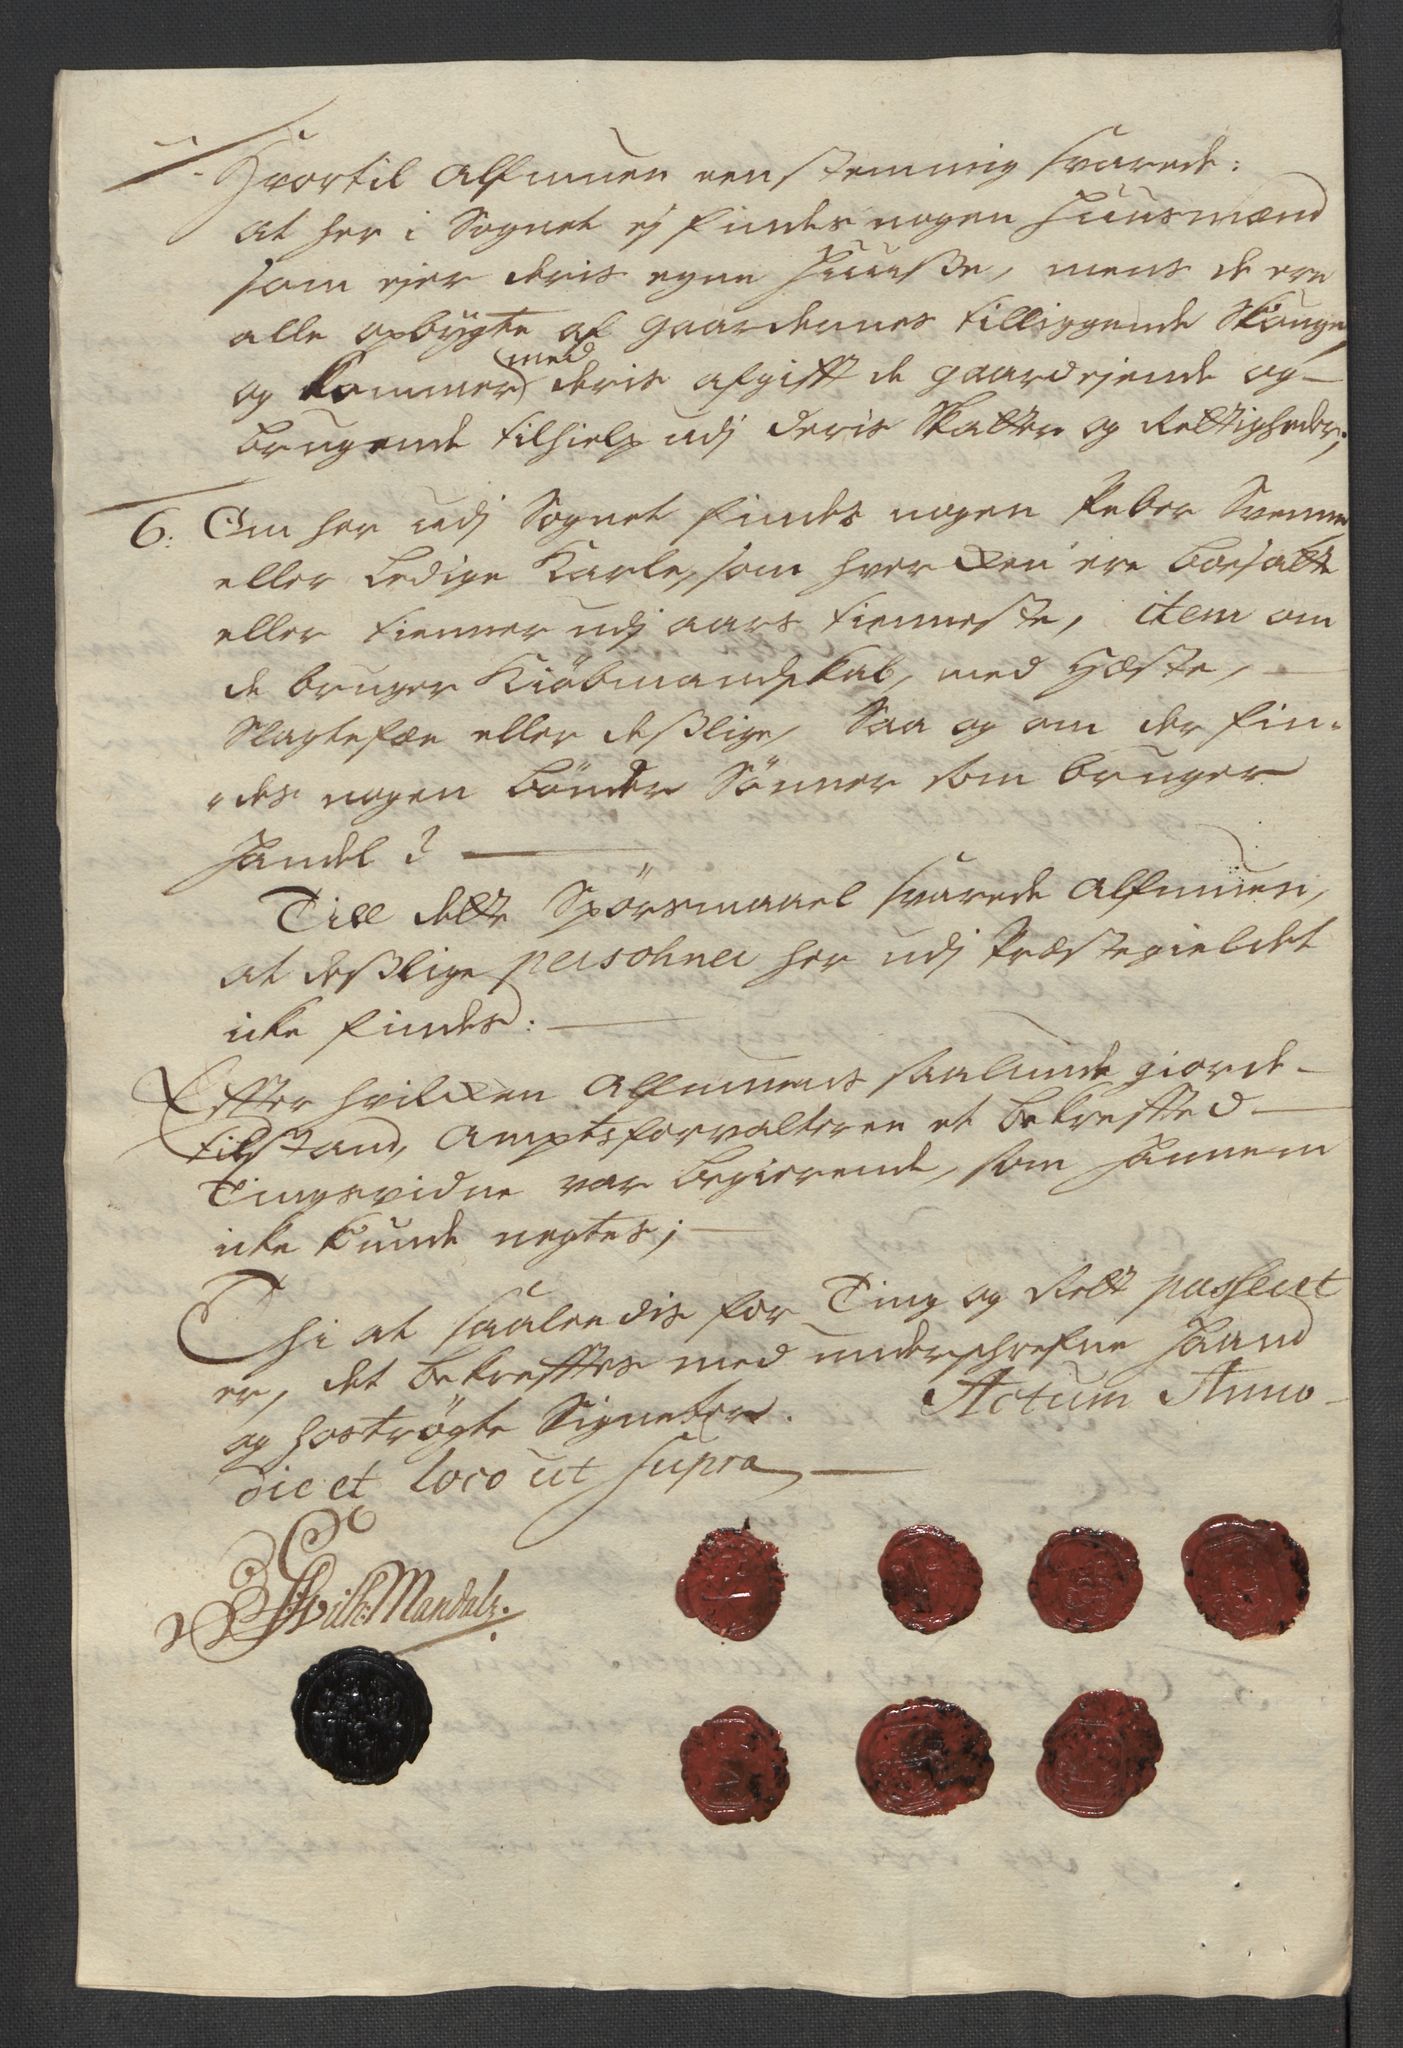 Hvortil Almuen eenstemmig svarede:
at her i Sognet ej findes nogen Huusmænd
som ejer deris egne Huuße, mens de ere
alle opbÿgte af gaardernes tilliggende Skouge,
og kommer med deris afgifft de gaardejende og
brugende tilhielp udj deris Skatter og Rettigheder;
6. Om her udj Sognet findes nogen Peber Svenne
eller Ledige Karle, som hverchen ere boesatte
eller tienner udj aars tienneste, item om
de bruger Kiöbmandskab, med Hæste,
Slagtefæe eller deßlige, Saa og om der fin-
des nogen bönder Sönner som bruger
Handel?
Till dette Spörsmaael svarede Almuen,
at deßlige persohner her udj Præstegieldet
icke findes:
Effter hvilchen Almuens saalunde giorde
tilstand, Amptsforvalteren et bekreffted
Tingsvidne var begierende, som hannem
icke kunde negtes;
Thi at saaleedis for Ting og Rett passeret
er, det bekrefftes med underschrefne Haand
og hoströgte Signeter. Actum Anno
die et loco ut supra
Wilh: Mandals.